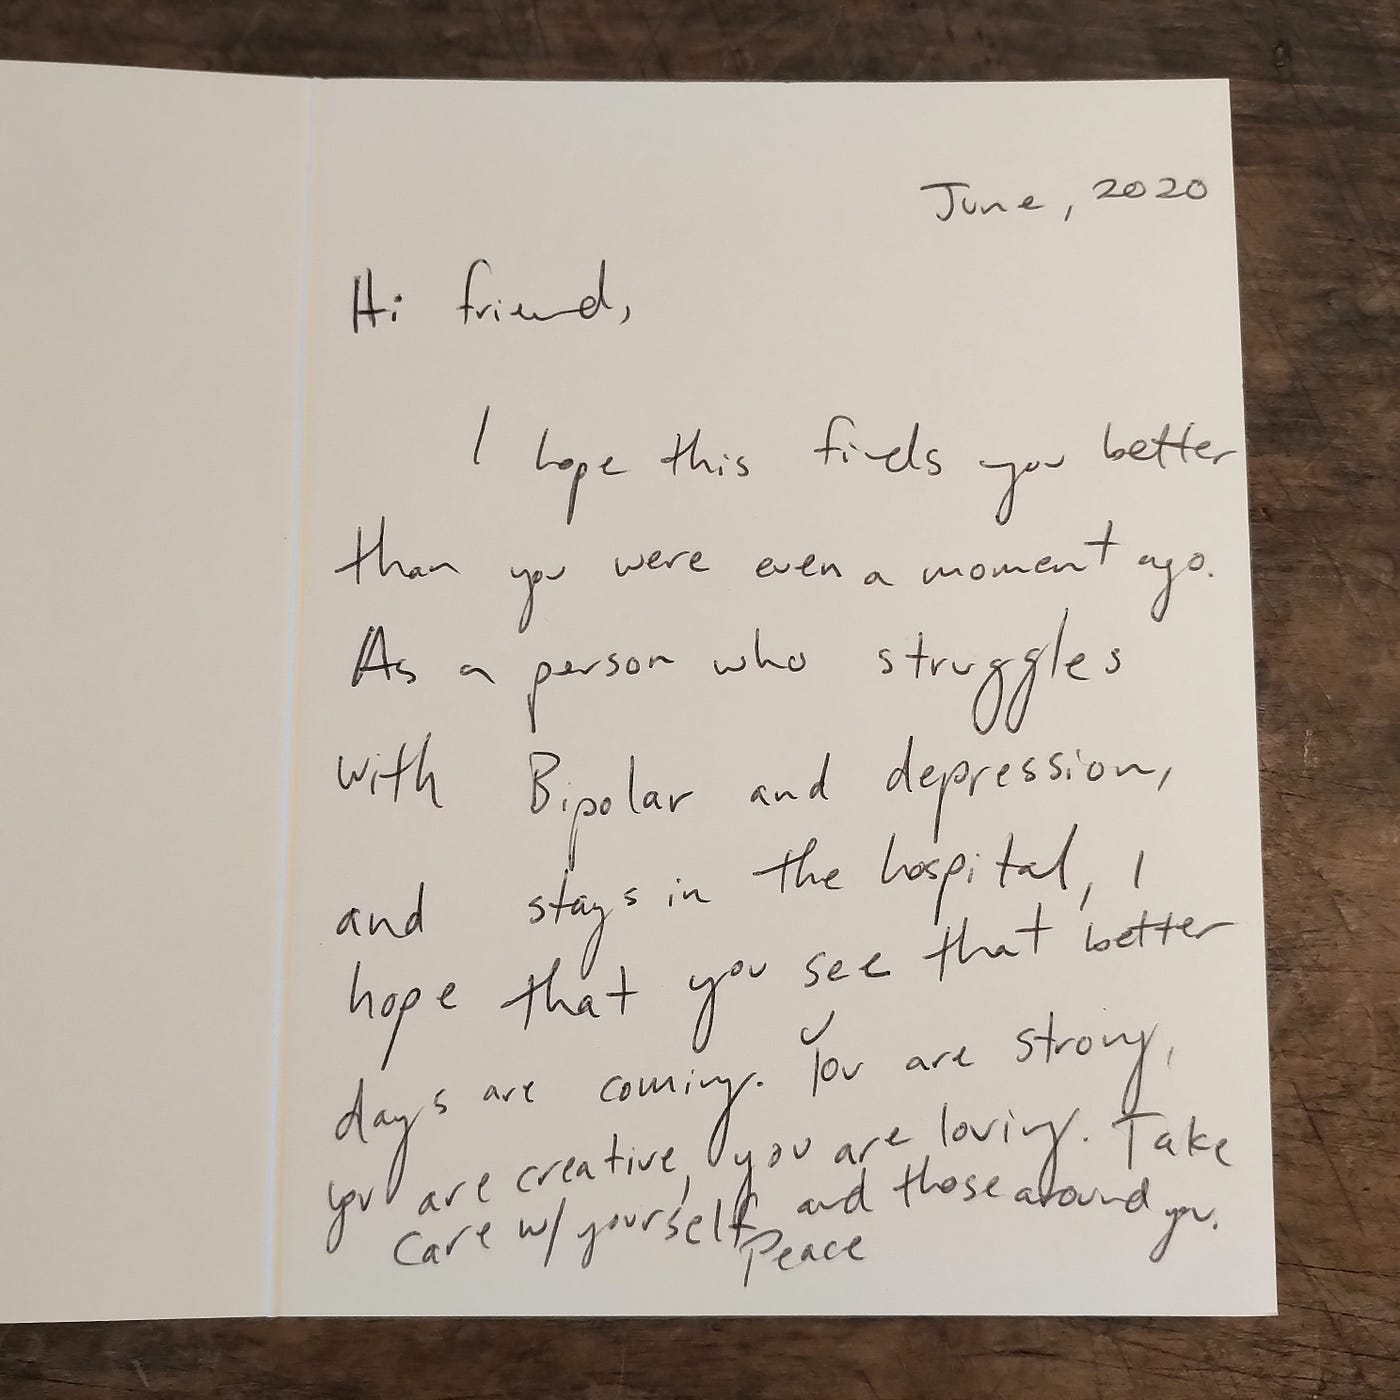 June, 2020
Hi friend,
I hope this finds you better
than you were even a moment ago.
As a person who struggles
with Bipolar and depression,
and stays in the hospital, I
hope that you see that better
days are coming. You are strong,
you are creative, you are loving. Take
care w/ yourself and those around you.
Peace